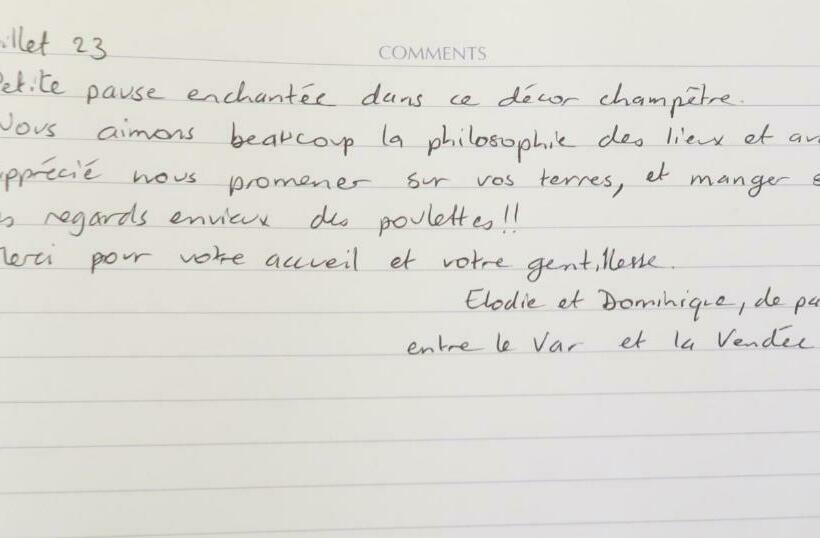 illet 23
COMMENTS
Petite pause enchantée dans ce décor champêtre.
Nous aimons beaucoup la philosophie des lieux et av
pprécié nous promener sur vos terres, et manger s
s regards envieux des poulettes!!
Merci pour votre accueil et votre gentillesse.
Elodie et Dominique, de pa
entre le Var et la Vendée